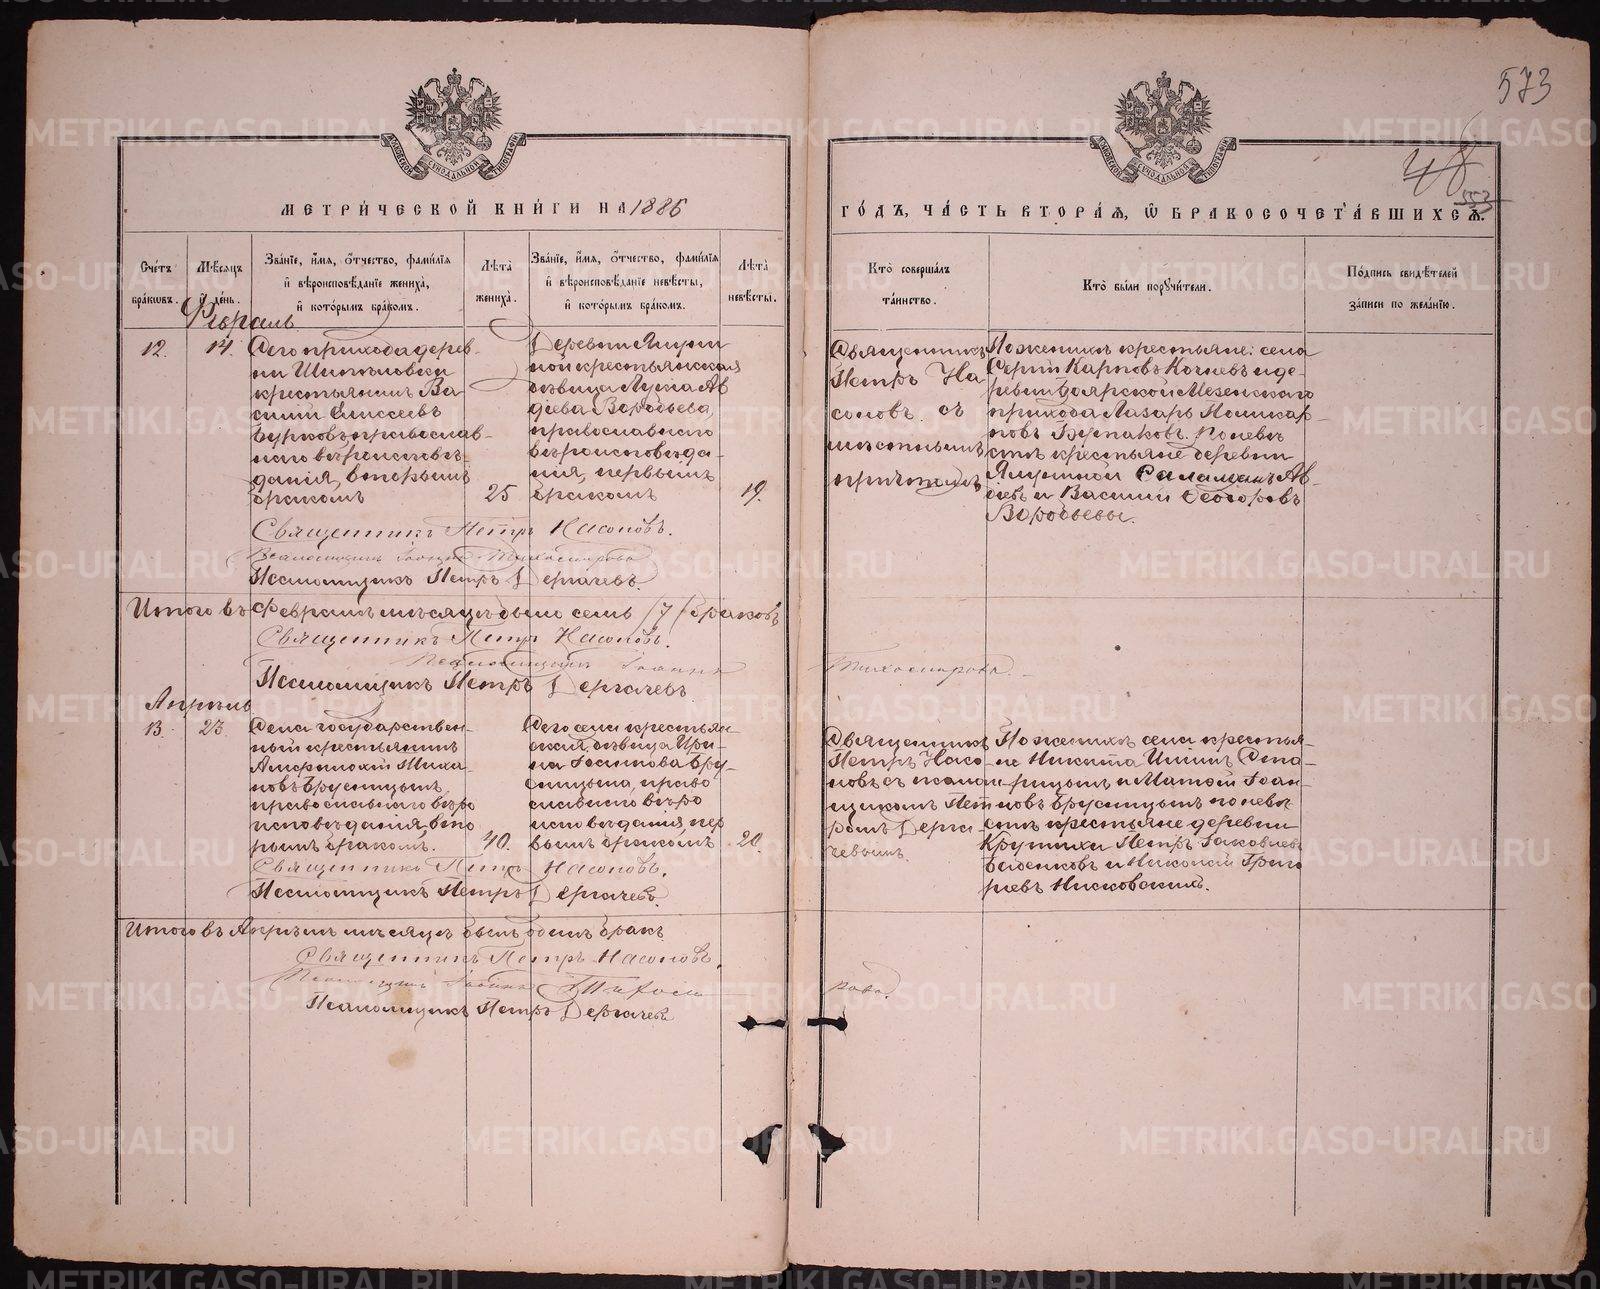 573
48
553
МЕТРИ́ЧЕСКОЙ КНИ́ГИ НА 1886
ГО́ДЪ, ЧА́СТЬ ВТОРА́Ѧ, Ѽ БРАКОСОЧЕТА́ВШИХСѦ.
Счéтъ брáкѡвъ.
Мѣ́сѧцъ и҆ дéнь.
Звáнїе, и҆́мѧ, ѻ҆́тчество, фамѝлїѧ и҆ вѣроисповѣ́данїе женихà, и҆ котóрымъ брáкомъ.
Лѣ́та женихà.
Звáнїе, и҆́мѧ, ѻ҆́тчество, фамѝлїѧ и҆ вѣроисповѣ́данїе невѣ́сты, и҆ котóрымъ брáкомъ.
Лѣ́та невѣ́сты.
Ктò совершáлъ тáинство.
Ктò бы́ли порꙋчи́тели.
Пóдпись свидѣ́телей зáписи по желáнїю.
Февраль
12.
14.
Сего прихода дерев-
ни Шипѣловки
крестьянинъ Ва-
силий Елисеевъ
Бурковъ православ-
наго вѣроисповѣ-
данія, вторымъ
бракомъ
25
Деревни Ялуни-
ной крестьянская
дѣвица Лукія Ав
деева Воробьева,
православнаго
вѣроисповѣда-
нія, первымъ
бракомъ
19.
Священникъ
Петръ На
соновъ съ
мѣстнымъ
причтомъ
По женихѣ крестьяне: села
Сергій Карповъ Кочневъ и де-
ревни Боярской Мезенскаго
прихода Лазарь Поликар-
повъ Бурлаковъ. По невѣ
стѣ крестьяне деревни
Ялуниной Саламанъ Ав-
деевъ и Василій Ѳеодоровъ
Воробьевы.
Священникъ Петръ Насоновъ.
Псаломщикъ Іоаннъ Тихомировъ
Псаломщикъ Петръ Дергачевъ.
Итого въ Февралѣ мѣсяцѣ было семь (7) браковъ
Священникъ Петръ Насоновъ.
Псаломщикъ Іоаннъ Тихомировъ.
Псаломщикъ Петръ Дергачевъ
Апрѣль
13.
23.
Села государствен-
ный крестьянинъ
Амфилохій Миха-
новъ Брусницынъ,
православнаго вѣро
исповѣданія, вто
рымъ бракомъ.
40.
Сего села крестьян-
ская дѣвица Ири-
на Іосифова Бру-
сницына, право
славнаго вѣро
исповѣданія, пер
вымъ бракомъ
20.
Священникъ
Петръ Насо-
новъ съ псалом
щикомъ Пет
ромъ Дерга-
чевымъ.
По женихѣ села крестья-
не Никита Ильинъ
и Матѳей Іоан-
новъ Брусницынъ по невѣ
стѣ крестьяне деревни
Крутихи Петръ Іаковлевъ
Бабенковъ и Николай Григо
рьевъ Нисковскихъ.
Священникъ Петръ Насоновъ.
Псаломщикъ Петръ Дергачевъ.
Итого въ Апрѣлѣ мѣсяцѣ былъ одинъ бракъ
Священникъ Петръ Насоновъ.
Псаломщикъ Іоаннъ Тихомировъ.
Псаломщикъ Петръ Дергачевъ
METRIKI.GASO-URAL.RU